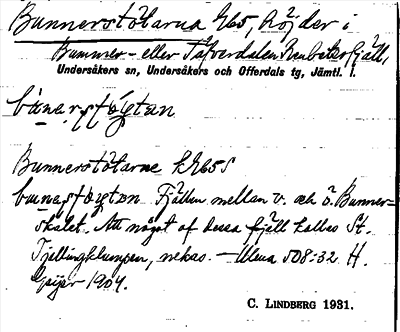 Bunnerstötarna k65, höjder i
Bunner- eller Tåfverdalen Renbetesfjäll,
Undersåkers sn, Undersåkers och Offerdals tg, Jämtl. l.
Bunnerstötarne k65S
Fjällen mellan v. och ö. Bunner-
skalet. Att något af dessa fjäll kallas St.
Tjallingklumpen, nekas. – Ulma 508:32 H.
Geijer 1904.
C. LINDBERG 1931.